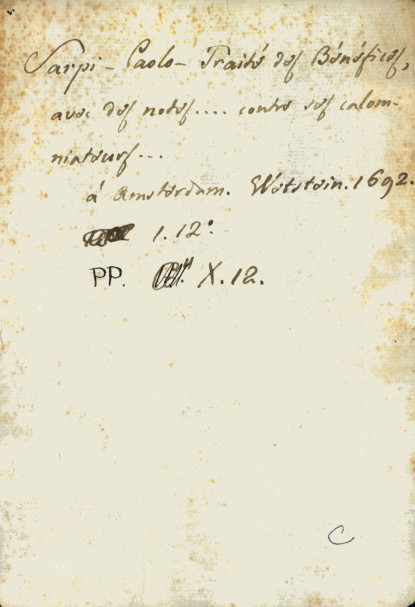 Sarpi - Paolo - Traité des Bénéfices,
avec des notes.... contre ses calom-
niateurs...
à Amsterdam. Wetstein. 1692.
1. 12°.
PP. X. 12.
C